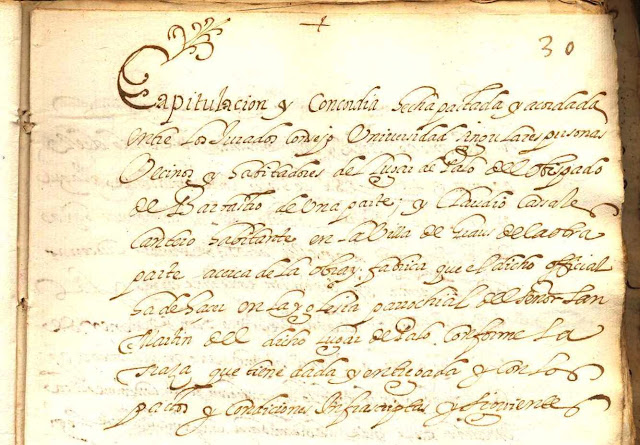 30
Capitulacion y Concordia hecha pactada y acordada
entre los Jurados Consejo Universidad singulares personas
Vecinos y habitadores del Lugar de Palo del Obispado
de Barbastro de una parte; y Claudio Casale
Cantero habitante en la Villa de Graus de la otra
parte acerca de la obra y fabrica que el dicho official
ha de hazer en la yglesia parrochial del Señor San
Martin del dicho Lugar de Palo conforme La
traza que tiene dada y entregada y con los
pactos y Condiciones Infrascriptas y siguientes